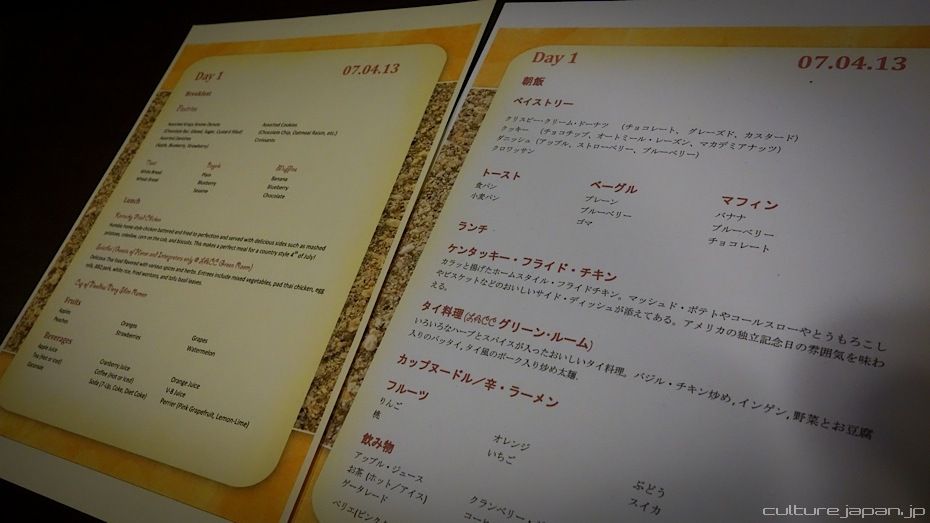 Day 1
07.04.13
Breakfast
Pastries
Assorted Krispy Kreme Donuts
(Chocolate Bar, Glazed, Sugar, Custard filled)
Assorted Danishes
(Apple, Blueberry, Strawberry)
Assorted Cookies
(Chocolate Chip, Oatmeal Raisin, etc.)
Croissants
Toast
White Bread
Wheat Bread
Bagels
Plain
Blueberry
Sesame
Muffins
Banana
Blueberry
Chocolate
Lunch
Kentucky Fried Chicken
Humble home style chicken battered and fried to perfection and served with delicious sides such as mashed
potatoes, coleslaw, corn on the cob, and biscuits. This makes a perfect meal for a country style 4th of July!
(Guests of Honor and Interpreters only @ LACC Green Room)
Delicious Thai food flavored with various spices and herbs. Entrees include mixed vegetables, pad thai chicken, egg
rolls, BBQ pork, white rice, fried wontons, and tofu basil leaves.
Cup of Noodles/
Fruits
Apples
Peaches
Oranges
Strawberries
Grapes
Watermelon
Beverages
Apple Juice
Tea (Hot or Iced)
Gatorade
Cranberry Juice
Coffee (Hot or Iced)
Soda (7-Up, Coke, Diet Coke)
Orange Juice
V-8 Juice
Perrier (Pink Grapefruit, Lemon-Lime)
Day 1
07.04.13
朝飯
ペイストリー
クリスピー・クリーム・ドーナツ （チョコレート、 グレーズド、カスタード）
クッキー （チョコチップ、オートミール・レーズン、マカデミアナッツ）
ダニッシュ (アップル、ストローベリー、ブルーベリー）
クロワッサン
トースト
食パン
小麦パン
ベーグル
プレーン
ブルーベリー
ゴマ
マフィン
バナナ
ブルーベリー
チョコレート
ランチ
ケンタッキー・フライド・チキン
カラッと揚げたホームスタイル・フライドチキン。マッシュド・ポテトやコールスローやとうもろこし
やビスケットなどのおいしいサイド・ディッシュが添えてある。アメリカの独立記念日の雰囲気を味わ
える。
タイ料理 (LACC グリーン・ルーム)
いろいろなハーブとスパイスが入ったおいしいタイ料理。バジル・チキン炒め, インゲン, 野菜とお豆腐
入りのパッタイ, タイ風のポーク入り炒め太麺.
カップヌードル／辛・ラーメン
フルーツ
りんご
桃
オレンジ
いちご
ぶどう
スイカ
飲み物
アップル・ジュース
お茶 (ホット／アイス)
ゲータレード
クランベリー・
culturejapan.jp